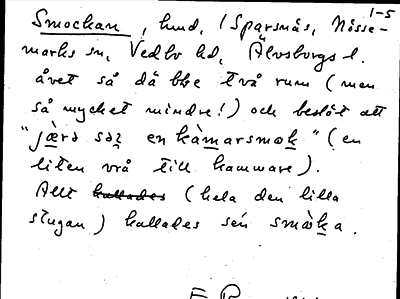 1-5
Smockan, hmd, (Sparsnäs, Nösse-
marks sn, Vedbo hd, Älvsborgs l.
åvet så då bbe två rum (men
så mycket mindre!) och beslöt att
"jæ̀rə səʒ en kàmarsmɔk" (en
liten vrå till kammare).
Allt kallades (hela den lilla
stugan) kallades sen smɔ̀ka.